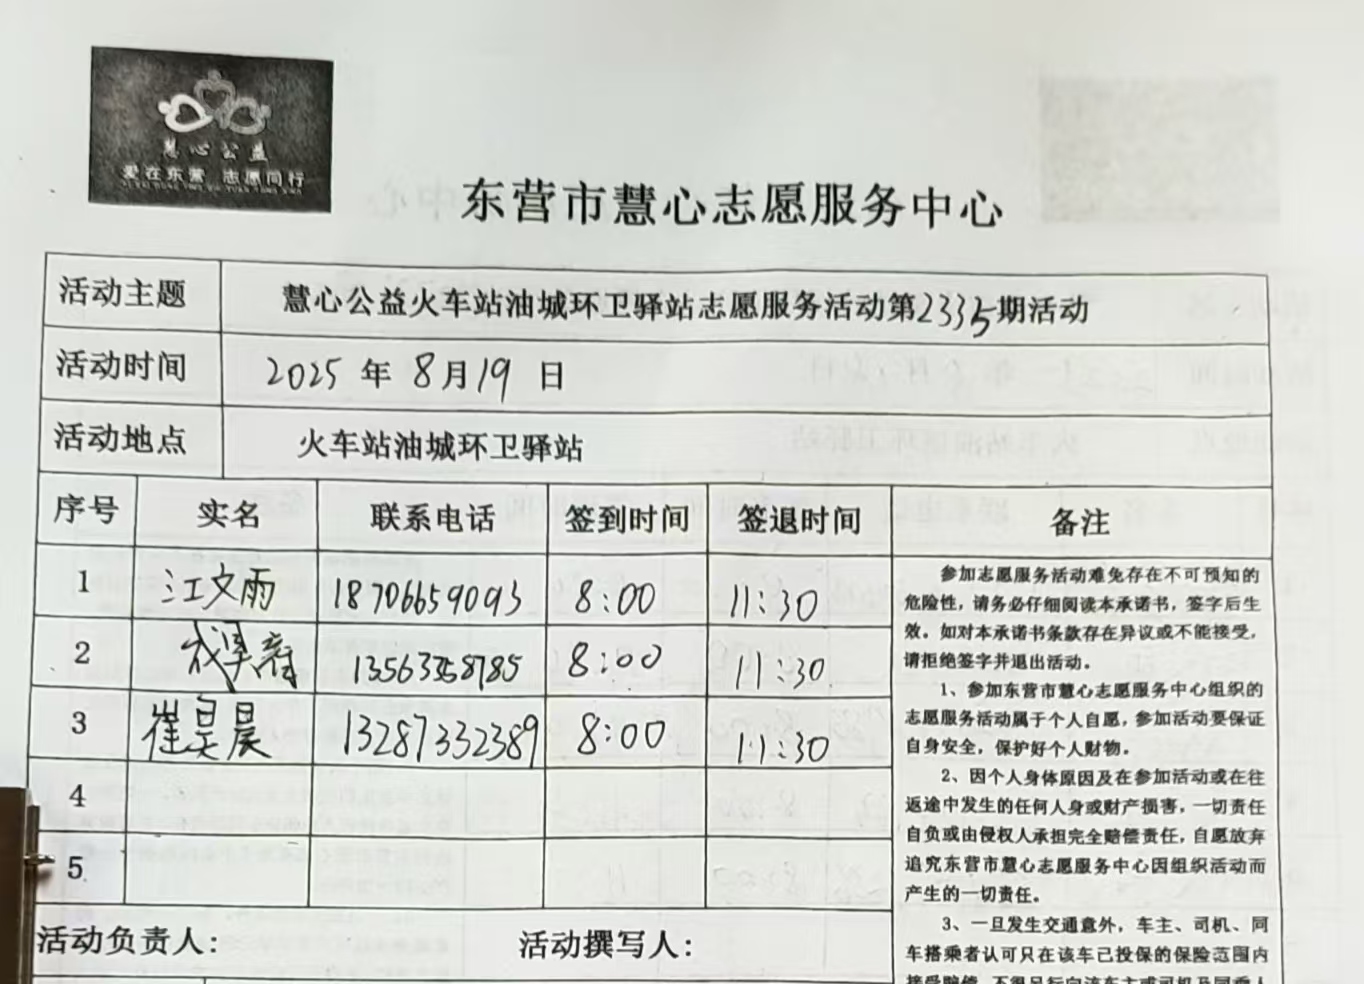 慧心公益
爱在东营 志愿同行
东营市慧心志愿服务中心
活动主题 慧心公益火车站油城环卫驿站志愿服务活动第2335期活动
活动时间 2025年8月19日
活动地点 火车站油城环卫驿站
序号 实名 联系电话 签到时间 签退时间 备注
1 江文雨 18706659093 8:00 11:30
2 8:00 11:30
3 崔昊晨 13287332389 8:00 11:30
4
5
活动负责人: 活动撰写人:
参加志愿服务活动难免存在不可预知的
危险性,请务必仔细阅读本承诺书,签字后生
效。如对本承诺书条款存在异议或不能接受,
请拒绝签字并退出活动。
1、参加东营市慧心志愿服务中心组织的
志愿服务活动属于个人自愿,参加活动要保证
自身安全,保护好个人财物。
2、因个人身体原因及在参加活动或在往
返途中发生的任何人身或财产损害,一切责任
自负或由侵权人承担完全赔偿责任,自愿放弃
追究东营市慧心志愿服务中心因组织活动而
产生的一切责任。
3、一旦发生交通意外,车主、司机、同
车搭乘者认可只在该车已投保的保险范围内